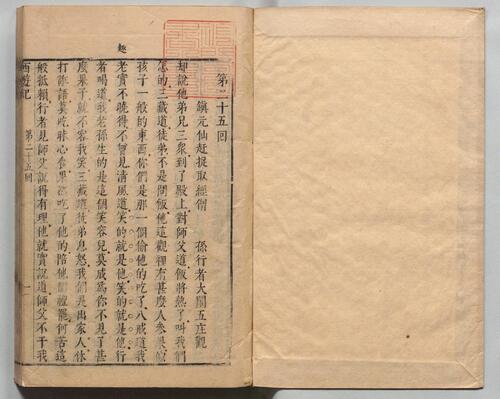 第二十五回
鎮元仙赶捉取經僧　孫行者大鬧五庄觀
却說他弟兄三衆到了殿上對師父道飯將熟了叫我們
怎的三藏道徒弟不是問飯他這觀裡有甚麼人參果似
孩子一般的東西你們是那一個偷他的吃了八戒道我
老實不曉得不曾見清風道笑的就是他笑的就是他行
者喝道我老孫生的是這個笑容兒莫成爲你不見了甚
麼果子就不容我笑三藏道徒弟息怒我們是出家人休
打誑語莫吃昧心食果然吃了他的陪他個禮罷何苦這
般抵賴行者見師父說得有理他就實說道師父不干我
西遊記
第二十五回
一